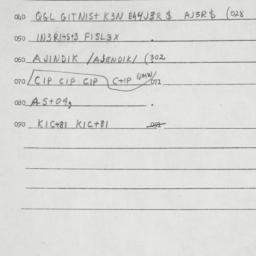 040 QGL GITNIS+ K3N EA4UER $ AJ3R $ (028
050 IN3RI+S+3 FISL3X .
060 AJINDIK /AJENDIK/ (302
070 CIP CIP CIP C+IP 071
080 A S+O4 .
090 KIC+81 KIC+81